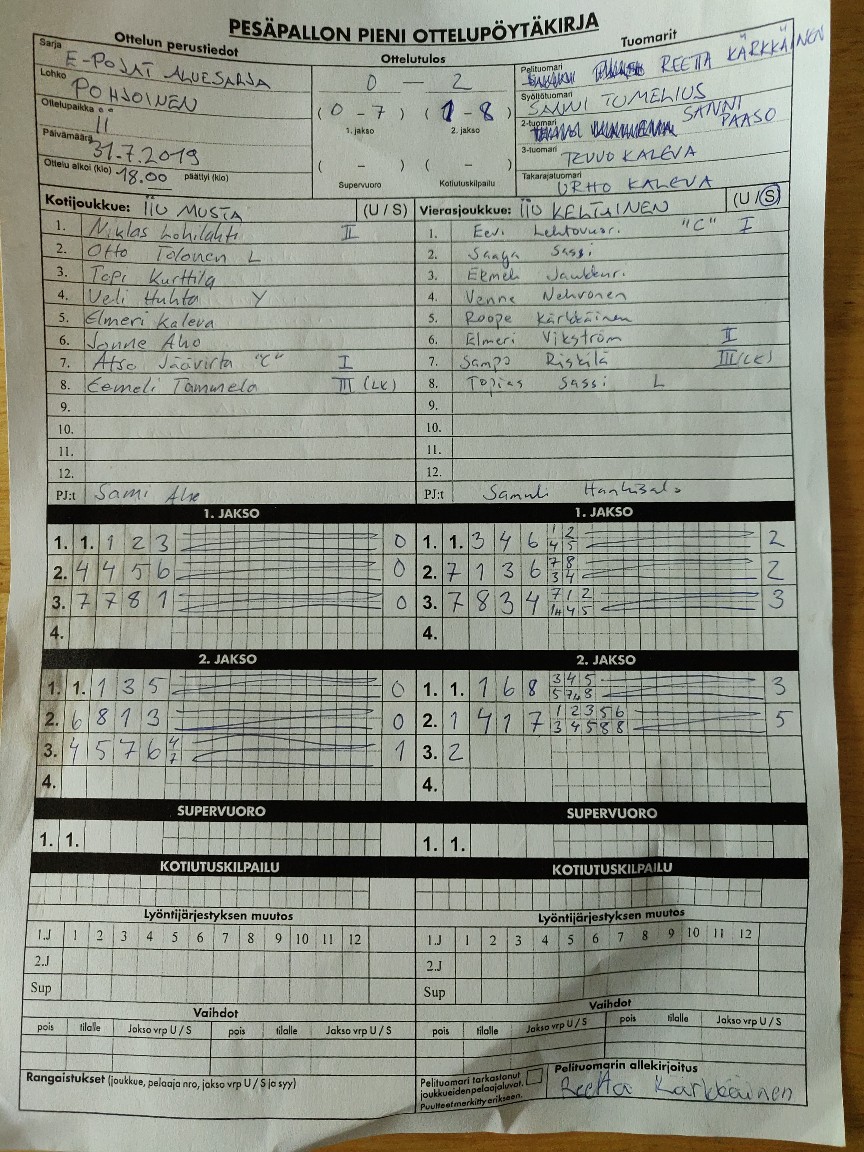 PESÄPALLON PIENI OTTELUPÖYTÄKIRJA
Ottelun perustiedot
Ottelutulos
Tuomarit
Sarja E-POJAT ALUESARJA
Lohko POHJOINEN
Ottelupaikka II
Päivämäärä 31.7.2019
Ottelu alkoi (klo) 18.00 päättyi (klo)
0 - 2
(0 - 7) (1 - 8)
1. jakso 2. jakso
( - ) ( - )
Supervuoro Kotiutuskilpailu
Pelituomari REETTA KÄRKKÄINEN
Syöttötuomari SANNI TUMELIUS
2-tuomari SANNI PAASO
3-tuomari TEUVO KALEVA
Takarajatuomari URHO KALEVA
Kotijoukkue: IIU MUSTA (U / S)
1. Niklas Lohilahti II
2. Otto Tolonen L
3. Topi Kurttila
4. Veli Huhta Y
5. Elmeri Kaleva
6. Jonne Aho
7. Atso Jäävirta "C" I
8. Eemeli Tammela III (LK)
9.
10.
11.
12.
PJ:t Sami Aho
Vierasjoukkue: IIU KELTAINEN (U / S)
1. Eevi Lehtovuori "C" I
2. Saaga Sassi
3. Eemeli
4. Venne Nehvonen
5. Roope Kärkkäinen
6. Elmeri Vikström II
7. Sampo Riskilä III (LK)
8. Topias Sassi L
9.
10.
11.
12.
PJ:t Samuli
1. JAKSO
1. 1. 1 2 3 0
2. 4 4 5 6 0
3. 7 7 8 1 0
4.
1. JAKSO
1. 1. 3 4 6 1 2 2
4 5
2. 7 1 3 6 7 8 2
3 4
3. 7 8 3 4 7 1 2 3
4 5
4.
2. JAKSO
1. 1. 1 3 5 0
2. 6 8 1 3 0
3. 4 5 7 6 4 1
7
4.
2. JAKSO
1. 1. 1 6 8 3 4 5 3
2. 1 4 1 7 1 2 3 5 6 5
3 4 5 8 8
3. 2
4.
SUPERVUORO
1. 1.
SUPERVUORO
1. 1.
KOTIUTUSKILPAILU
KOTIUTUSKILPAILU
Lyöntijärjestyksen muutos
1.J 1 2 3 4 5 6 7 8 9 10 11 12
2.J
Sup
Lyöntijärjestyksen muutos
1.J 1 2 3 4 5 6 7 8 9 10 11 12
2.J
Sup
Vaihdot
pois tilalle Jakso vrp U / S pois tilalle Jakso vrp U / S
Vaihdot
pois tilalle Jakso vrp U / S pois tilalle Jakso vrp U / S
Rangaistukset (joukkue, pelaaja nro, jakso vrp U / S ja syy)
Pelituomari tarkastanut
joukkueiden pelaajaluvat.
Puutteet merkitty erikseen.
Pelituomarin allekirjoitus
Reetta Kärkkäinen